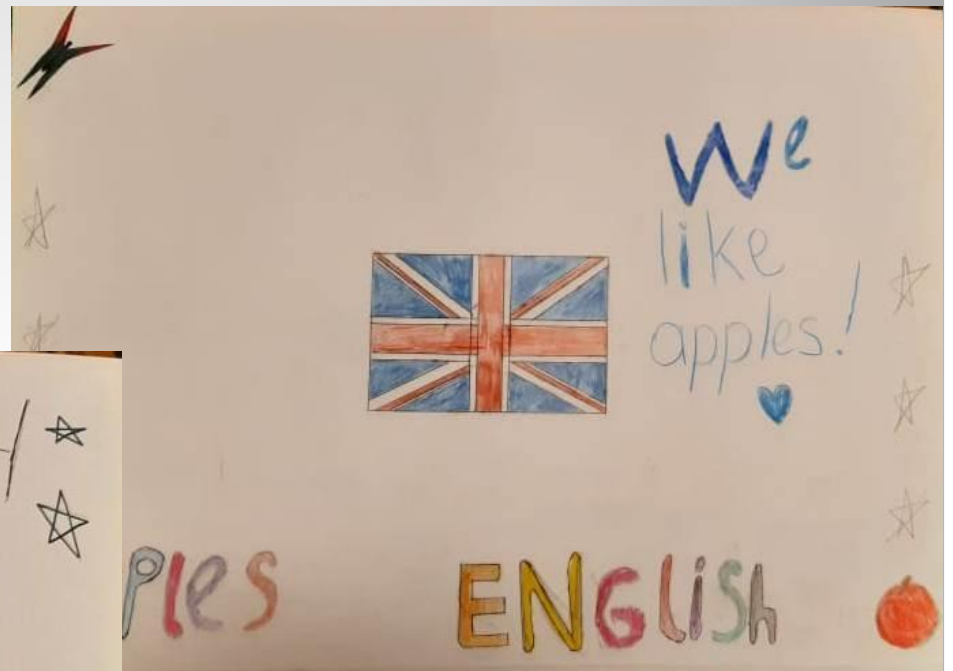 We
like
apples!
ples ENGlisH